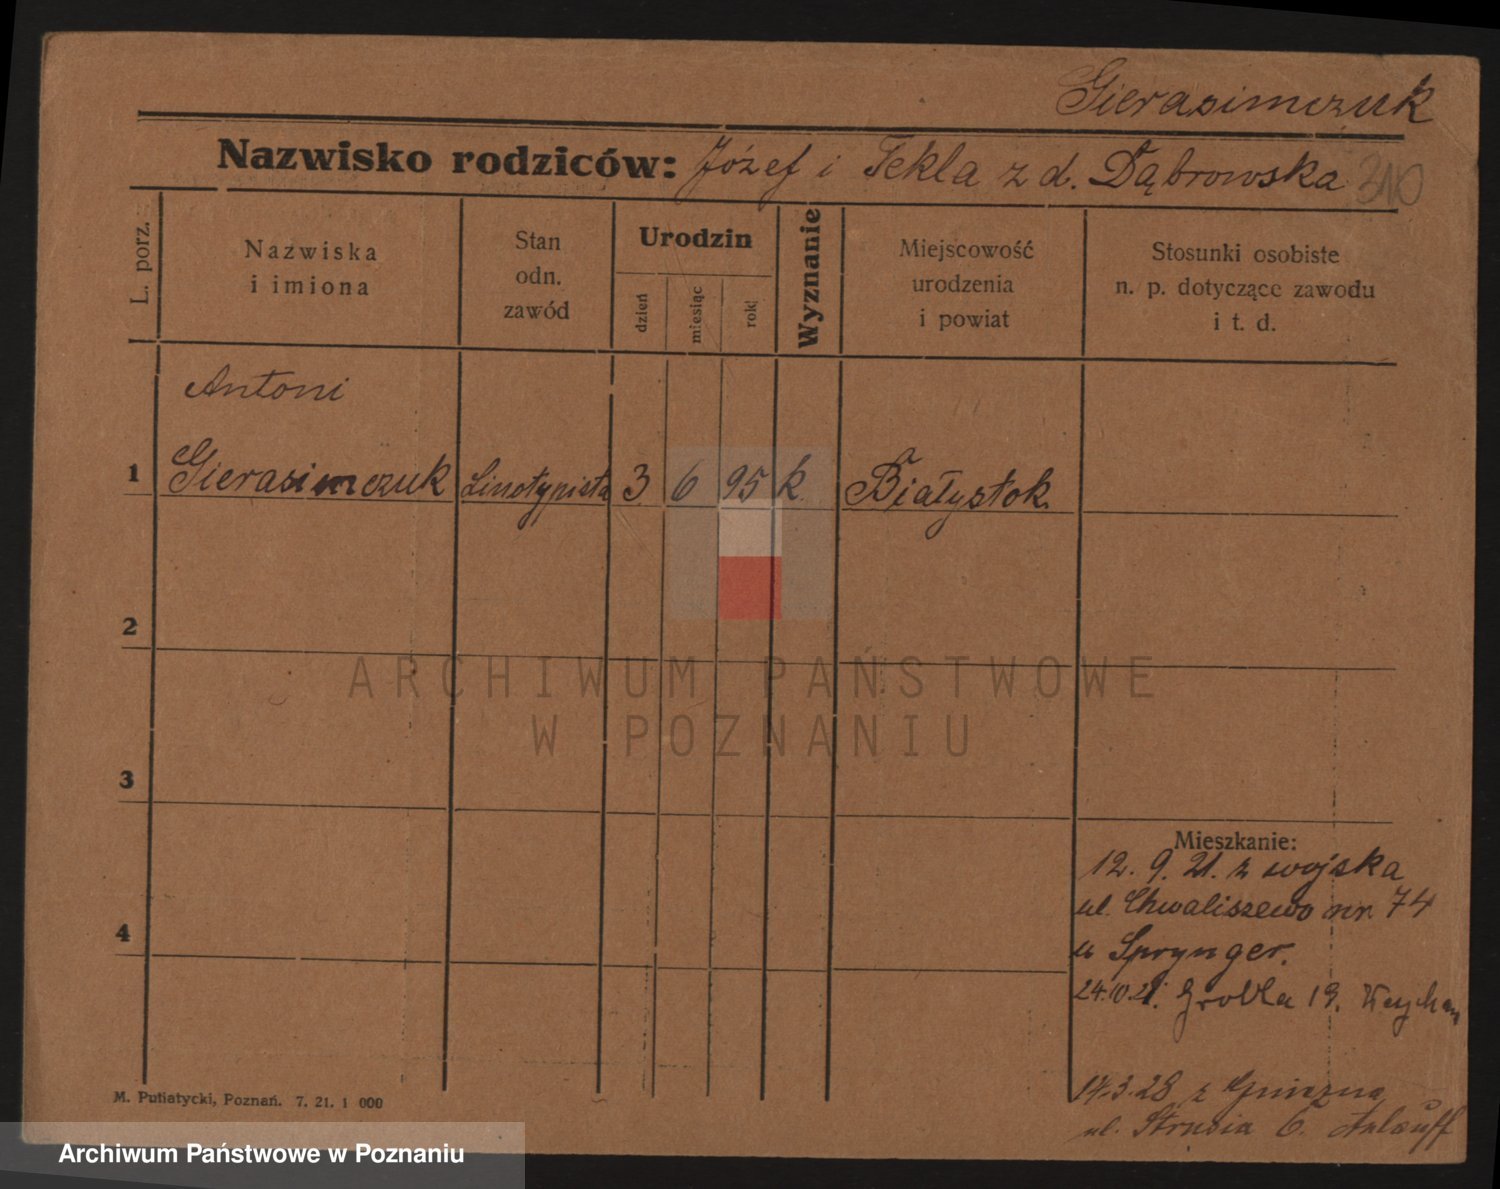 Gierasimczuk
Nazwisko rodziców: Józef i Tekla z d. Dąbrowska 310
L. porz.
Nazwiska
i imiona
Stan
odn.
zawód
Urodzin
dzień
miesiąc
rok
Wyznanie
Miejscowość
urodzenia
i powiat
Stosunki osobiste
n. p. dotyczące zawodu
i t. d.
Antoni
1 Gierasimczuk Linotypista 3 6 95 k. Białystok
2
ARCHIWUM PAŃSTWOWE
W POZNANIU
3
Mieszkanie:
12. 9. 21. z wojska
ul. Chwaliszewo nr. 74
4
u Sprynger.
24.10.21. Grobla 19.
14.3.28 z Gniezna
ul. Strusia 6.
M. Putiatycki, Poznań. 7. 21. 1 000
Archiwum Państwowe w Poznaniu